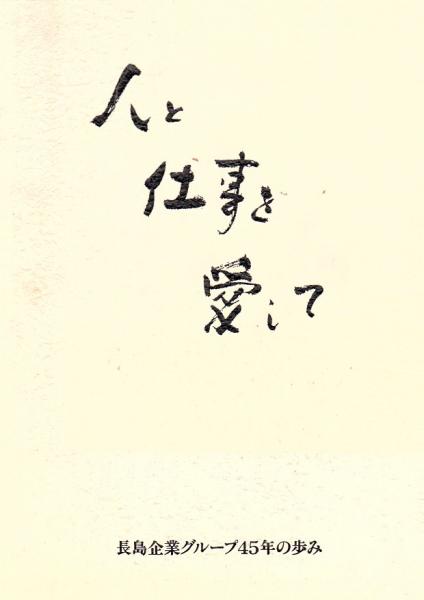 人と
仕事を
愛して
長島企業グループ45年の歩み